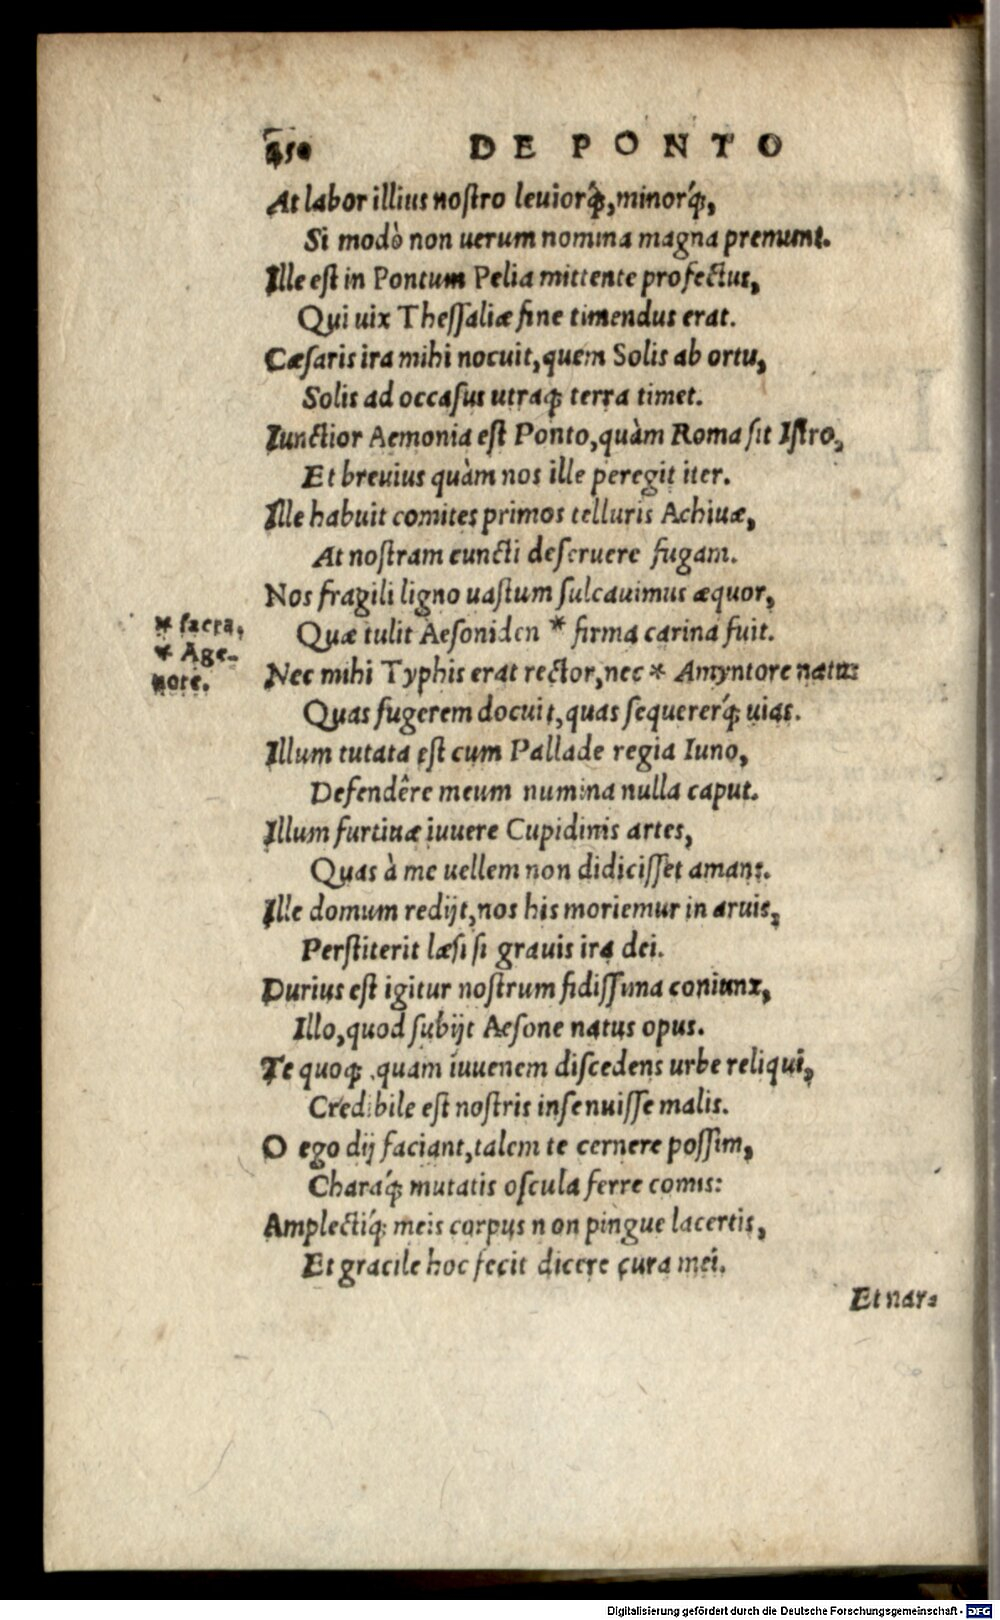 450 DE PONTO
At labor illius nostro leuiorq́;, minorq́;,
Si modò non uerum nomina magna premunt.
Ille est in Pontum Pelia mittente profectus,
Qui uix Thessaliæ fine timendus erat.
Cæsaris ira mihi nocuit, quem Solis ab ortu,
Solis ad occasus utraq; terra timet.
Iunctior Aemonia est Ponto, quàm Roma sit Istro,
Et breuius quàm nos ille peregit iter.
Ille habuit comites primos telluris Achiuæ,
At nostram cuncti descruere fugam.
Nos fragili ligno uastum sulcauimus æquor,
* sacra,
Quæ tulit Aesoniden * firma carina fuit.
* Age-
note.
Nec mihi Typhis erat rector, nec * Amyntore natus
Quas fugerem docuit, quas sequererq́; uias.
Illum tutata est cum Pallade regia Iuno,
Defendêre meum numina nulla caput.
Illum furtiuæ iuuere Cupidinis artes,
Quas à me uellem non didicisset amans.
Ille domum redijt, nos his moriemur in aruis,
Perstiterit læsi si grauis ira dei.
Durius est igitur nostrum fidissima coniunx,
Illo, quod subijt Aesone natus opus.
Te quoq; quam iuuenem discedens urbe reliqui,
Credibile est nostris insenuisse malis.
O ego dij faciant, talem te cernere possim,
Charaq́; mutatis oscula ferre comis:
Amplectiq́; meis corpus non pingue lacertis,
Et gracile hoc fecit dicere cura mei.
Et nar-
Digitalisierung gefördert durch die Deutsche Forschungsgemeinschaft - DFG